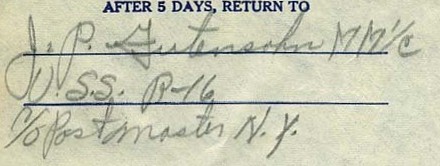 AFTER 5 DAYS, RETURN TO
J. P. Gutensohn MM1/C
U.S.S. R-16
C/o Postmaster N.Y.